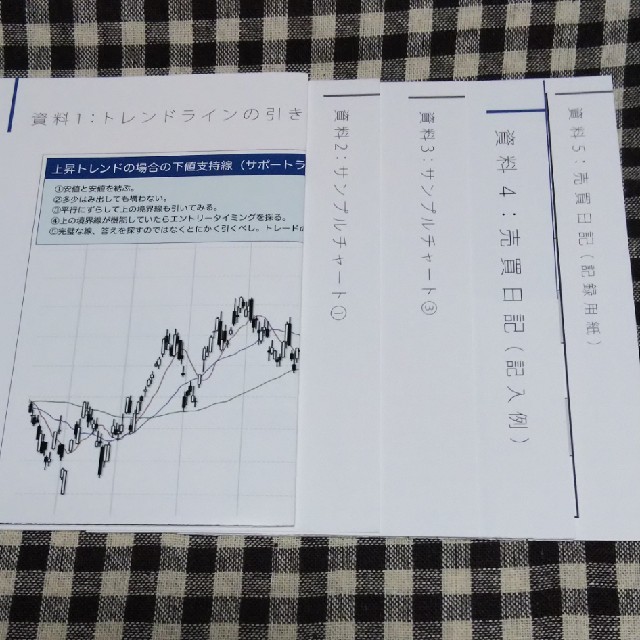 資料1:トレンドラインの引き
上昇トレンドの場合の下値支持線（サポートラ
①安値と安値を結ぶ。
②多少はみ出しても構わない。
③平行にずらして上の境界線も引いてみる。
④上の境界線が機能していたらエントリータイミングを探る。
⑤完璧な線、答えを探すのではなくとにかく引くべし。トレードの
資料2:サンプルチャート①
資料3:サンプルチャート③
資料4:売買日記(記入例)
資料5:売買日記(記録用紙)